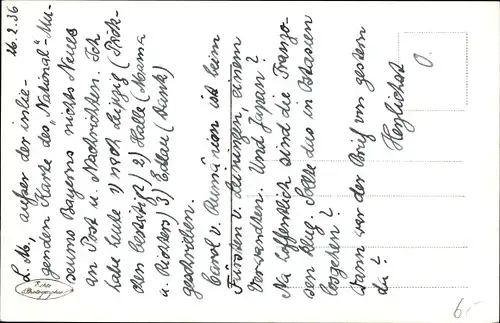 16.2.36
L. M., außer der inlie-
genden Karte des "National"-Mu-
seums Bayerns nichts Neues
an Post u. Nachrichten. Ich
habe heute 1) nach Leipzig
bestätigt) 2) Halle (Mama
u. Richters) 3) (Dank)
geschrieben.
Carol v. Rumänien ist beim
Fürsten v. Leiningen, einem
Verwandten. Und Japan?
Na hoffentlich sind die Franzo-
sen klug. Sollte das in Ostasien
losgehen?
Wann war der Brief von gestern
da?
Herzlichst
O.
Echte
Photographie
6,-